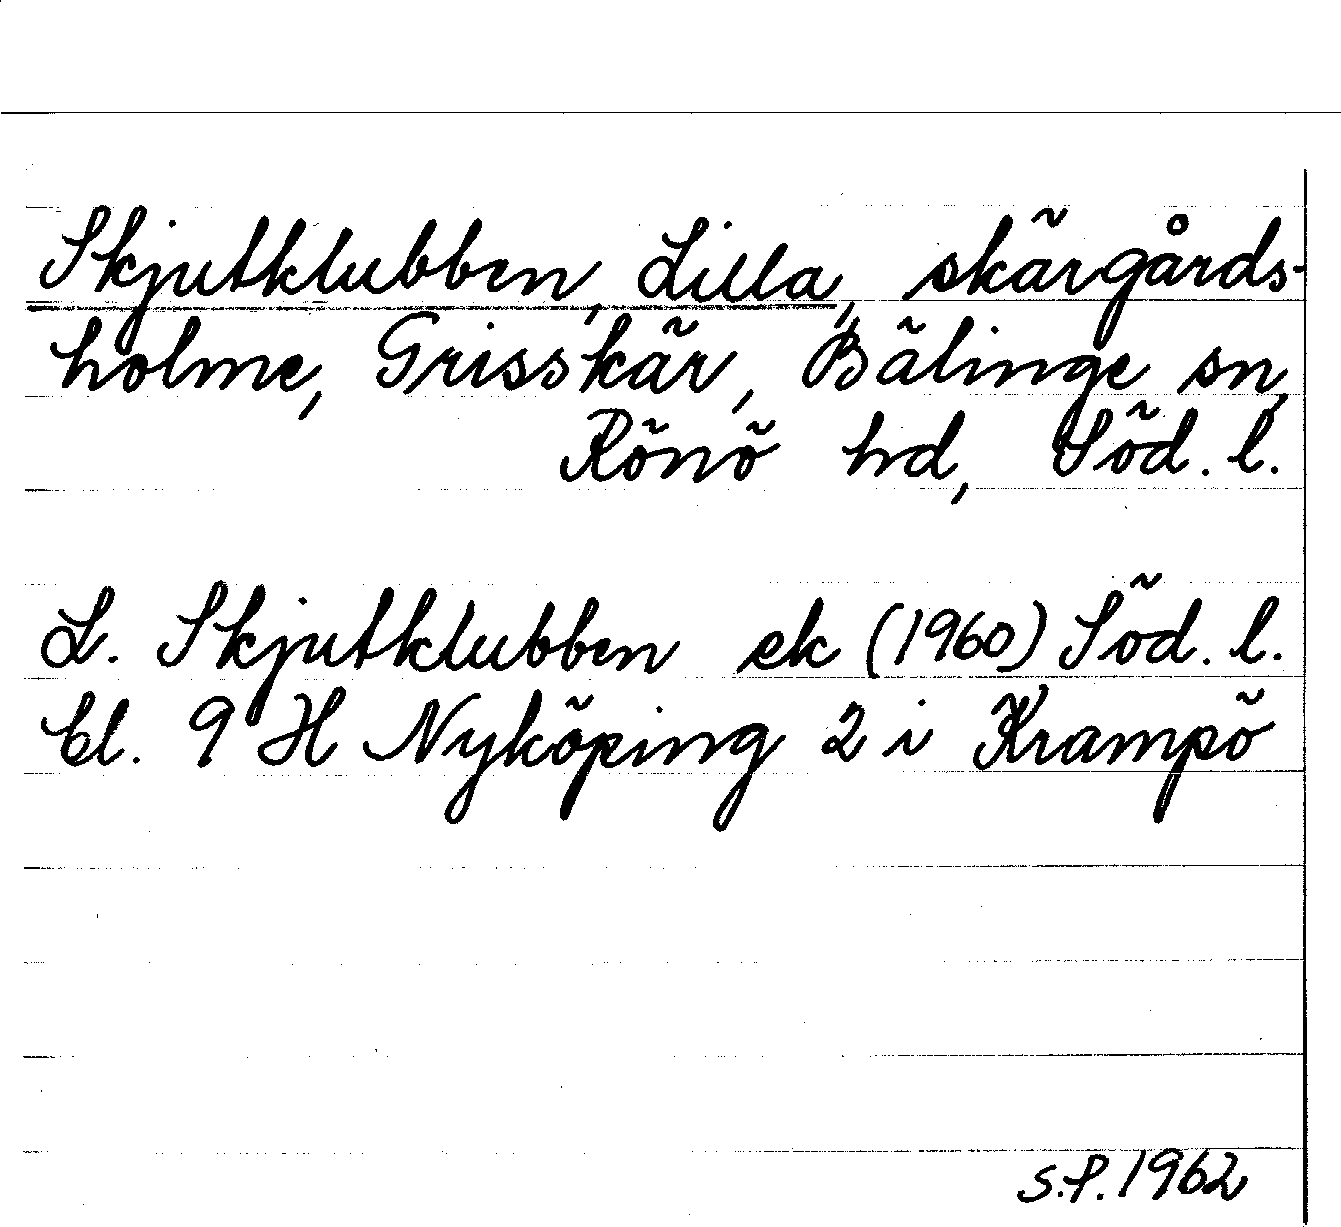 Skjutklubben, Lilla, skärgårds-
holme, Grisskär, Bälinge sn,
Rönö hd, Söd. l.
L. Skjutklubben ek (1960) Söd. l.
Bl. 9 H Nyköping 2 i Krampö
S.P. 1962